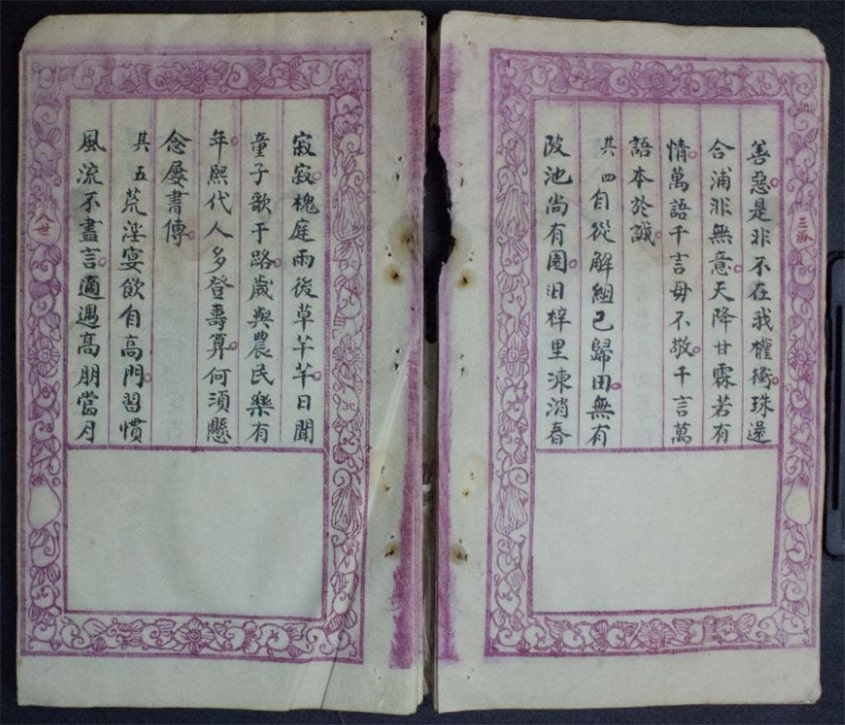 善惡是非不在我權衡珠還
合浦非無意天降甘霖若有
情萬語千言毋不敬千言萬
語本於誠
其四自從解組已歸田無有
陂池尚有園旧梓里凍消春
寂寂槐庭雨後草芊芊日聞
童子歌于路歲與農民樂有
年熙代人多登壽算何須懸
念屡書傳
其五荒淫宴飲自高門習慣
風流不盡言適遇高朋當月